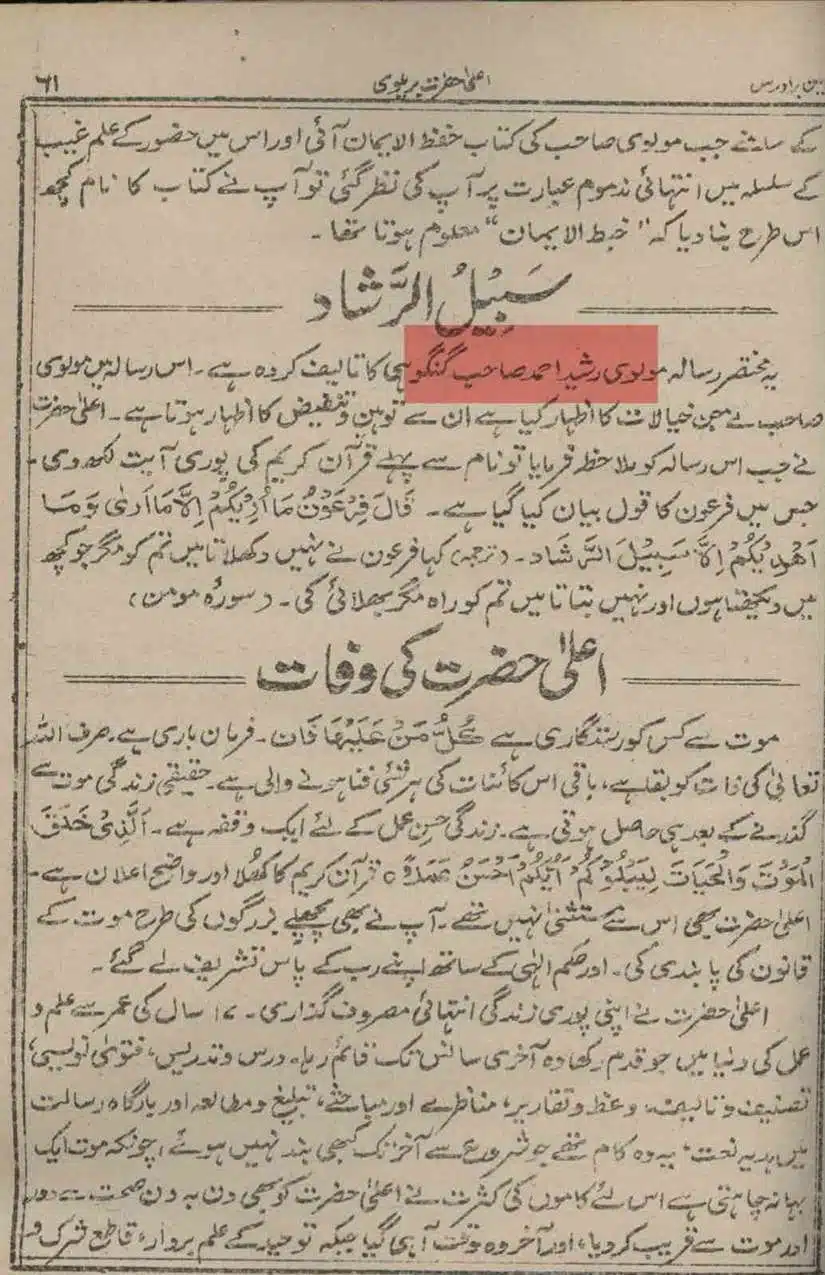 بین برادرس
اعلیٰ حضرت بریلوی
۶۱
کے سامنے جب مولوی صاحب کی کتاب حفظ الایمان آئی اور اس میں حضور کے علم غیب
کے سلسلہ میں انتہائی مذموم عبارت پر آپ کی نظر گئی تو آپ نے کتاب کا نام کچھ
اس طرح بنا دیا کہ "خبط الایمان" معلوم ہوتا تھا۔
سَبِیْلُ الرَّشَاد
یہ مختصر رسالہ مولوی رشید احمد صاحب گنگوہی کا تالیف کردہ ہے۔ اس رسالہ میں مولوی
صاحب نے جن خیالات کا اظہار کیا ہے ان سے توہین و تنقیض کا اظہار ہوتا ہے۔ اعلیٰ حضرت
نے جب اس رسالہ کو ملاحظہ فرمایا تو نام سے پہلے قرآن کریم کی پوری آیت لکھ دی۔
جس میں فرعون کا قول بیان کیا گیا ہے۔ قَالَ فِرْعَوْنُ مَا اُرِیْکُمْ اِلَّا مَا اَرٰی وَ مَا
اَھْدِیْکُمْ اِلَّا سَبِیْلَ الرَّشَاد۔ (ترجمہ) کہا فرعون نے نہیں دکھلاتا میں تم کو مگر جو کچھ
میں دیکھتا ہوں اور نہیں بتاتا میں تم کو راہ مگر بھلائی کی۔ (سورہ مومن)
اعلیٰ حضرت کی وفات
موت سے کس کو رستگاری ہے کُلُّ مَنْ عَلَیْهَا فَان۔ فرمان باری ہے۔ صرف اللہ
تعالیٰ کی ذات کو بقا ہے، باقی اس کائنات کی ہر شئی فنا ہونے والی ہے۔ حقیقی زندگی موت سے
گذرنے کے بعد ہی حاصل ہوتی ہے۔ زندگی حسن عمل کے لئے ایک وقفہ ہے۔ اَلَّذِیْ خَلَقَ
الْمَوْتَ وَالْحَیَاتَ لِیَبْلُوَکُمْ اَیُّکُمْ اَحْسَنُ عَمَلًا ○ قرآن کریم کا کھلا اور واضح اعلان ہے۔
اعلیٰ حضرت بھی اس سے مستثنیٰ نہیں تھے۔ آپ نے بھی پچھلے بزرگوں کی طرح موت کے
قانون کی پابندی کی۔ اور حکم الٰہی کے ساتھ اپنے رب کے پاس تشریف لے گئے۔
اعلیٰ حضرت نے اپنی پوری زندگی انتہائی مصروف گذاری۔ ۱۷ سال کی عمر سے علم و
عمل کی دنیا میں جو قدم رکھا وہ آخری سانس تک قائم رہا۔ درس و تدریس، فتویٰ نویسی،
تصنیف و تالیف، وعظ و تقاریر، مناظرے اور مباحثے، تبلیغ و مطالعہ اور بارگاہ رسالت
میں ہدیہ نعت، یہ وہ کام تھے جو شروع سے آخر تک کبھی بند نہیں ہوئے، چونکہ موت ایک
بہانہ چاہتی ہے اس لئے کاموں کی کثرت نے اعلیٰ حضرت کو بھی دن بہ دن صحت سے دور
اور موت سے قریب کر دیا، اور آخر وہ وقت آ ہی گیا جبکہ توحید کے علم بردار، قاطع شرک و